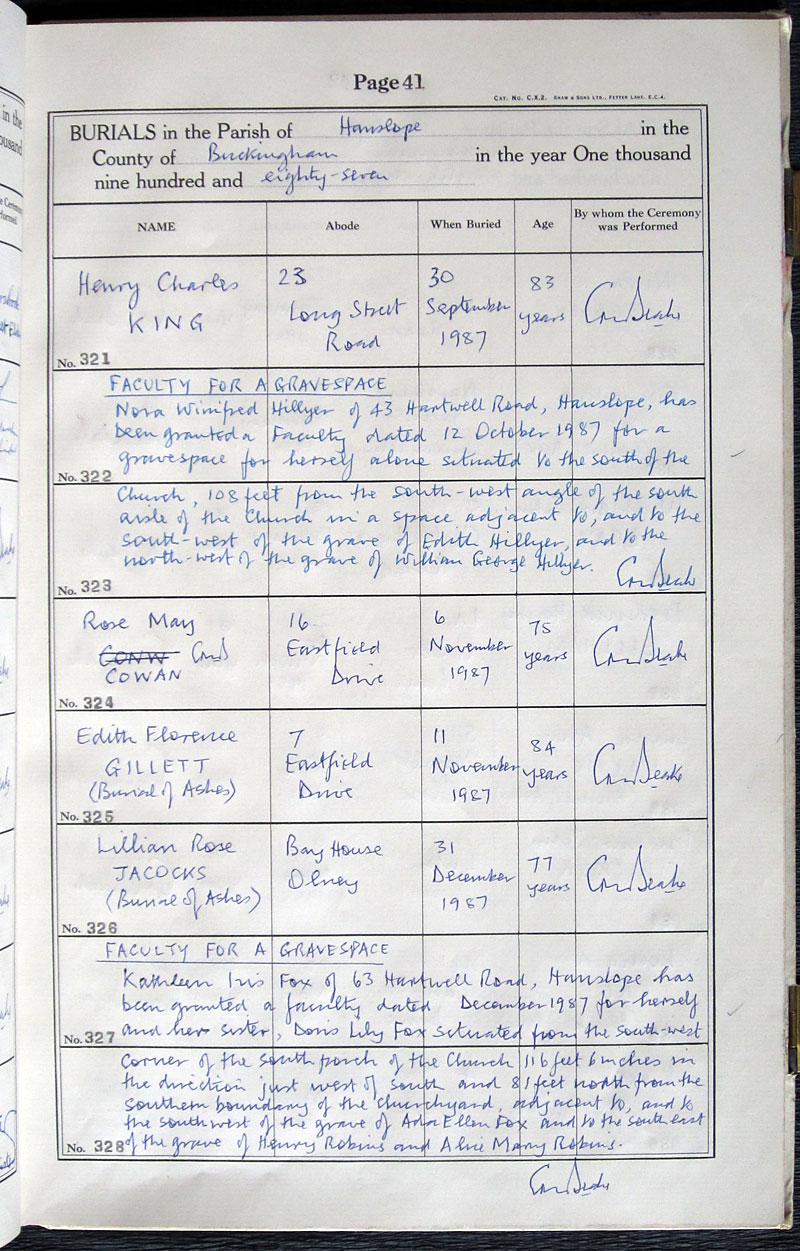 Page 41
CAT. No. C.X.2. SHAW & SONS LTD., FETTER LANE, E.C.4.
BURIALS in the Parish of Hanslope in the
County of Buckingham in the year One thousand
nine hundred and eighty-seven
NAME Abode When Buried Age By whom the Ceremony was Performed
Henry Charles
KING
23
Long Street
Road
30
September
1987
83
years
No. 321
FACULTY FOR A GRAVESPACE
Nora Winifred Hillyer of 43 Hartwell Road, Hanslope, has
been granted a Faculty dated 12 October 1987 for a
gravespace for herself alone situated to the south of the
No. 322
Church, 108 feet from the south-west angle of the south
aisle of the Church in a space adjacent to, and to the
south-west of the grave of Edith Hillyer, and to the
north-west of the grave of William George Hillyer.
No. 323
Rose May
CONW
COWAN
16
Eastfield
Drive
6
November
1987
75
years
No. 324
Edith Florence
GILLETT
(Burial of Ashes)
7
Eastfield
Drive
11
November
1987
84
years
No. 325
Lillian Rose
JACOCKS
(Burial of Ashes)
Bay House
Olney
31
December
1987
77
years
No. 326
FACULTY FOR A GRAVESPACE
Kathleen Iris Fox of 63 Hartwell Road, Hanslope has
been granted a faculty dated December 1987 for herself
and her sister, Doris Lily Fox situated from the south-west
No. 327
corner of the south porch of the Church 116 feet 6 inches in
the direction just west of south and 81 feet north from the
southern boundary of the churchyard, adjacent to, and to
the southwest of the grave of Ada Ellen Fox and to the south east
of the grave of Henry Robins and Alice Mary Robins.
No. 328